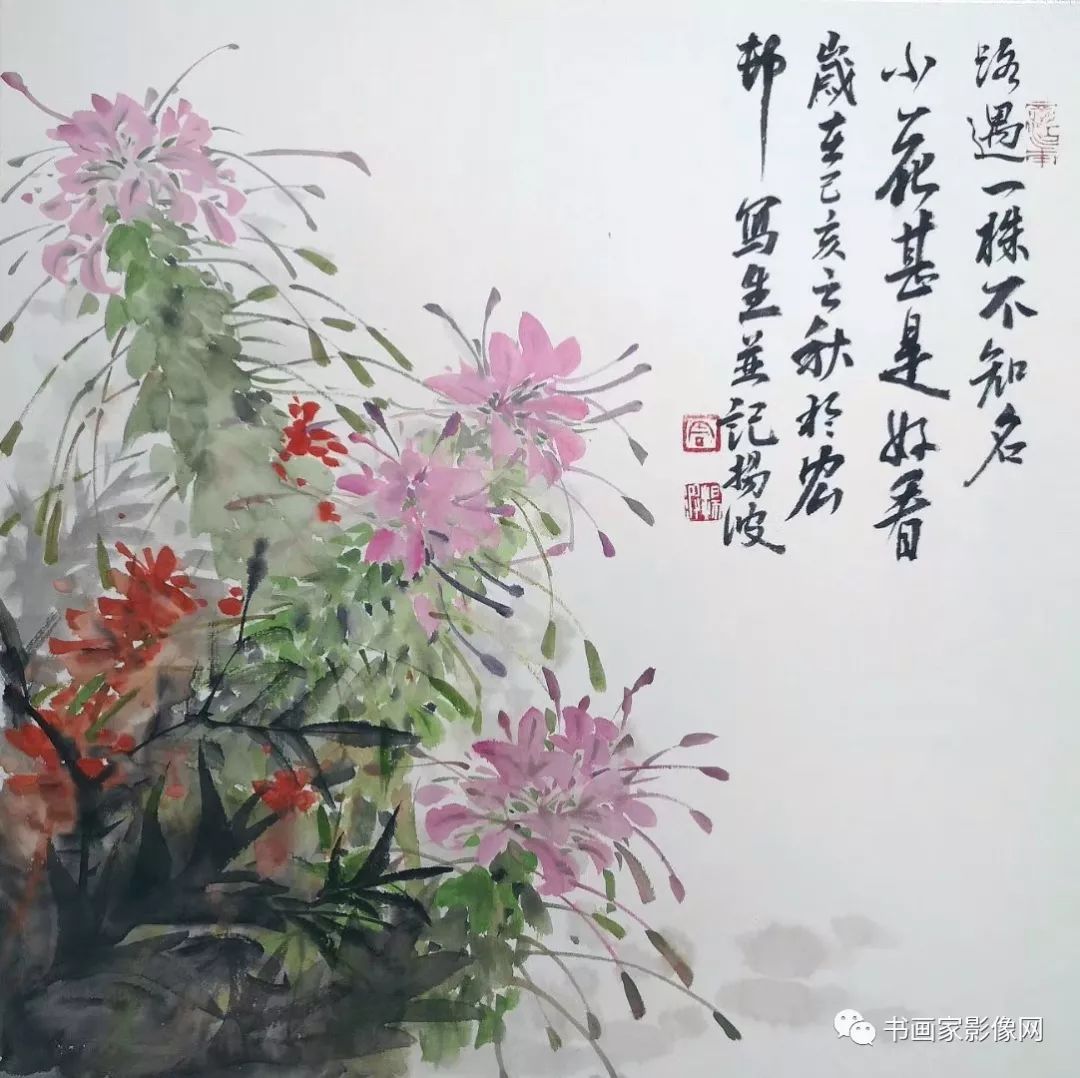 路遇一株不知名
小花甚是好看
歲在己亥之秋於宏
邨寫生並記揚波
周
书画家影像网